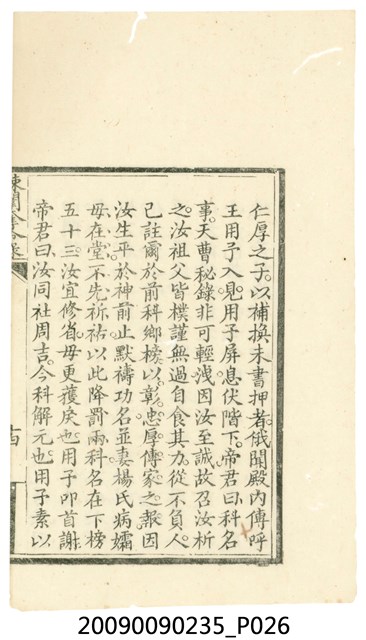 仁厚之子。以補換未書押者。俄聞殿內傳呼
王用予入見。用予屏息伏階下。帝君曰。科名
事。天曹秘錄。非可輕淺。因汝至誠。故召汝析
之。汝祖父皆樸謹無過。自食其力。從不負人。
已註爾於前科鄉榜。以彰忠厚傳家之報。因
汝生平於神前止默禱功名。並妻楊氏病孀
母在堂。不先祈祐。以此降罰兩科。名在下榜
五十三。汝宜修省。毋更獲戾也。用予叩首謝。
帝君曰。汝同社周吉。今科解元也。用予素以
20090090235_P026